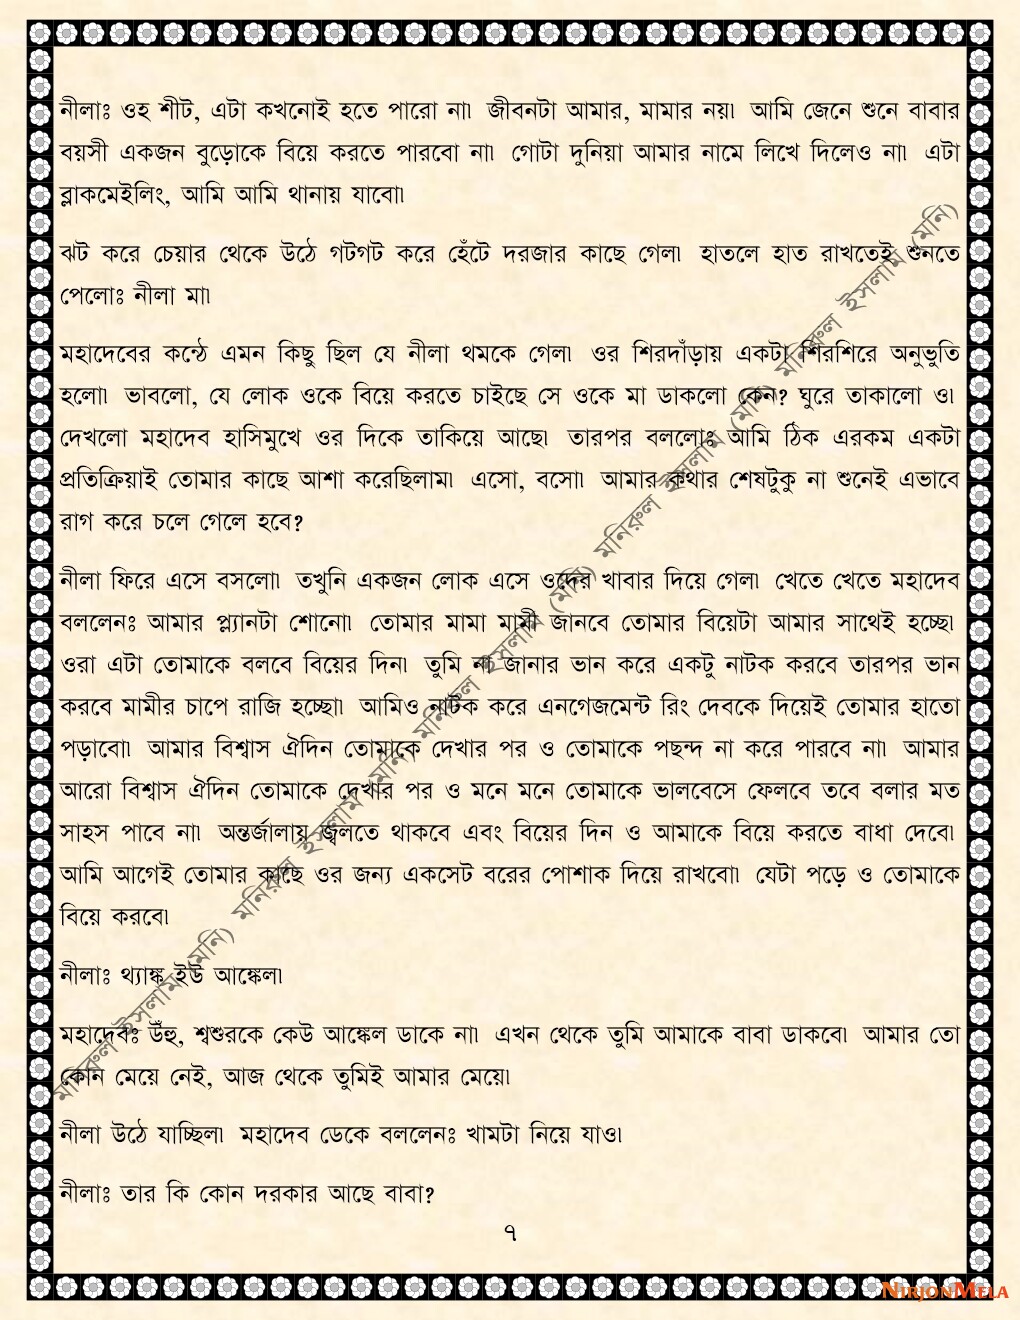 নীলাঃ ওহ শীট, এটা কখনোই হতে পারো না৷ জীবনটা আমার, মামার নয়৷ আমি জেনে শুনে বাবার
বয়সী একজন বুড়োকে বিয়ে করতে পারবো না৷ গোটা দুনিয়া আমার নামে লিখে দিলেও না৷ এটা
ব্লাকমেইলিং, আমি আমি থানায় যাবো৷
ঝট করে চেয়ার থেকে উঠে গটগট করে হেঁটে দরজার কাছে গেল৷ হাতলে হাত রাখতেই শুনতে
পেলোঃ নীলা মা৷
মহাদেবের কন্ঠে এমন কিছু ছিল যে নীলা থমকে গেল৷ ওর শিরদাঁড়ায় একটা শিরশিরে অনুভুতি
হলো৷ ভাবলো, যে লোক ওকে বিয়ে করতে চাইছে সে ওকে মা ডাকলো কেন? ঘুরে তাকালো ও৷
দেখলো মহাদেব হাসিমুখে ওর দিকে তাকিয়ে আছে৷ তারপর বললোঃ আমি ঠিক এরকম একটা
প্রতিক্রিয়াই তোমার কাছে আশা করেছিলাম৷ এসো, বসো৷ আমার কথার শেষটুকু না শুনেই এভাবে
রাগ করে চলে গেলে হবে?
নীলা ফিরে এসে বসলো৷ তখুনি একজন লোক এসে ওদের খাবার দিয়ে গেল৷ খেতে খেতে মহাদেব
বললেনঃ আমার প্ল্যানটা শোনো৷ তোমার মামা মামী জানবে তোমার বিয়েটা আমার সাথেই হচ্ছে৷
ওরা এটা তোমাকে বলবে বিয়ের দিন৷ তুমি না জানার ভান করে একটু নাটক করবে তারপর ভান
করবে মামীর চাপে রাজি হচ্ছো৷ আমিও নাটক করে এনগেজমেন্ট রিং দেবকে দিয়েই তোমার হাতো
পড়াবো৷ আমার বিশ্বাস ঐদিন তোমাকে দেখার পর ও তোমাকে পছন্দ না করে পারবে না৷ আমার
আরো বিশ্বাস ঐদিন তোমাকে দেখার পর ও মনে মনে তোমাকে ভালবেসে ফেলবে তবে বলার মত
সাহস পাবে না৷ অন্তর্জালায় জ্বলতে থাকবে এবং বিয়ের দিন ও আমাকে বিয়ে করতে বাধা দেবে৷
আমি আগেই তোমার কাছে ওর জন্য একসেট বরের পোশাক দিয়ে রাখবো৷ যেটা পড়ে ও তোমাকে
বিয়ে করবে৷
নীলাঃ থ্যাঙ্ক ইউ আঙ্কেল৷
মহাদেবঃ উঁহু, শ্বশুরকে কেউ আঙ্কেল ডাকে না৷ এখন থেকে তুমি আমাকে বাবা ডাকবে৷ আমার তো
কোন মেয়ে নেই, আজ থেকে তুমিই আমার মেয়ে৷
নীলা উঠে যাচ্ছিল৷ মহাদেব ডেকে বললেনঃ খামটা নিয়ে যাও৷
নীলাঃ তার কি কোন দরকার আছে বাবা?
৭
মনিরুল ইসলাম (মনি) মনিরুল ইসলাম (মনি) মনিরুল ইসলাম (মনি) মনিরুল ইসলাম (মনি) মনিরুল ইসলাম (মনি)
NIRJONMELA